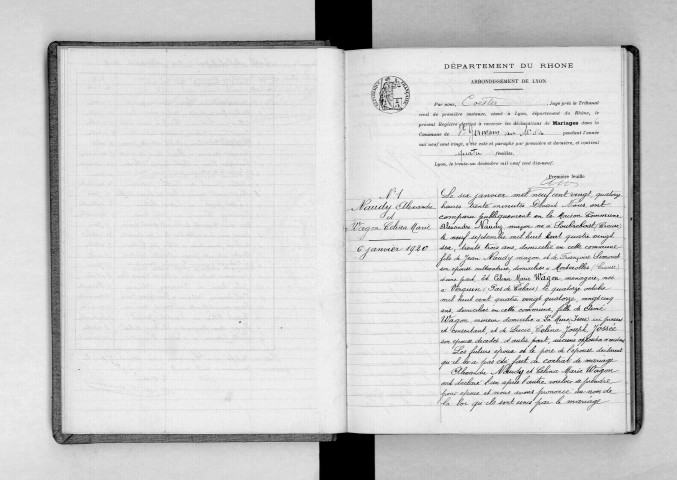 DÉPARTEMENT DU RHONE
ARRONDISSEMENT DE LYON
Par nous, Coester, Juge près le Tribunal
civil de première instance, séant à Lyon, département du Rhône, le
présent Registre destiné à recevoir les déclarations de Mariages dans la
Commune de St Germain au Mt d'Or pendant l'année
mil neuf cent vingt, a été coté et paraphé par première et dernière, et contient
quatre feuilles.
Lyon, le trente-un décembre mil neuf cent dix-neuf.
Première feuille
N° 1
Naudy Alexandre
et
Wagon Celina Marie
6 janvier 1920
Le six janvier mil neuf cent vingt, quatorze
heures trente minutes Devant Nous ont
comparu publiquement en la Maison Commune
Alexandre Naudy maçon né à Soubrebost (Creuse)
le neuf septembre mil huit cent quatre vingt
six, trente trois ans, domicilié en cette commune
fils de Jean Naudy maçon et de Françoise
son épouse domiciliés à (Creuse)
d'une part, Et Celina Marie Wagon ménagère, née
à Verquin (Pas de Calais) le quatorze octobre
mil huit cent quatre vingt quatorze, vingt cinq
ans, domiciliée en cette commune, fille de
Wagon mineur domicilié à La Mure (Isère) ici présent
et consentant, et de Lucie Celina Joseph Jossée
son épouse décédée d'autre part, aucune opposition n'existant
Les futurs époux et le père de l'épouse déclarent
qu'il n'a pas été fait de contrat de mariage
Alexandre Naudy et Celina Marie Wagon
ont déclaré l'un après l'autre vouloir se prendre
pour époux et nous avons prononcé au nom de
la loi qu'ils sont unis par le mariage